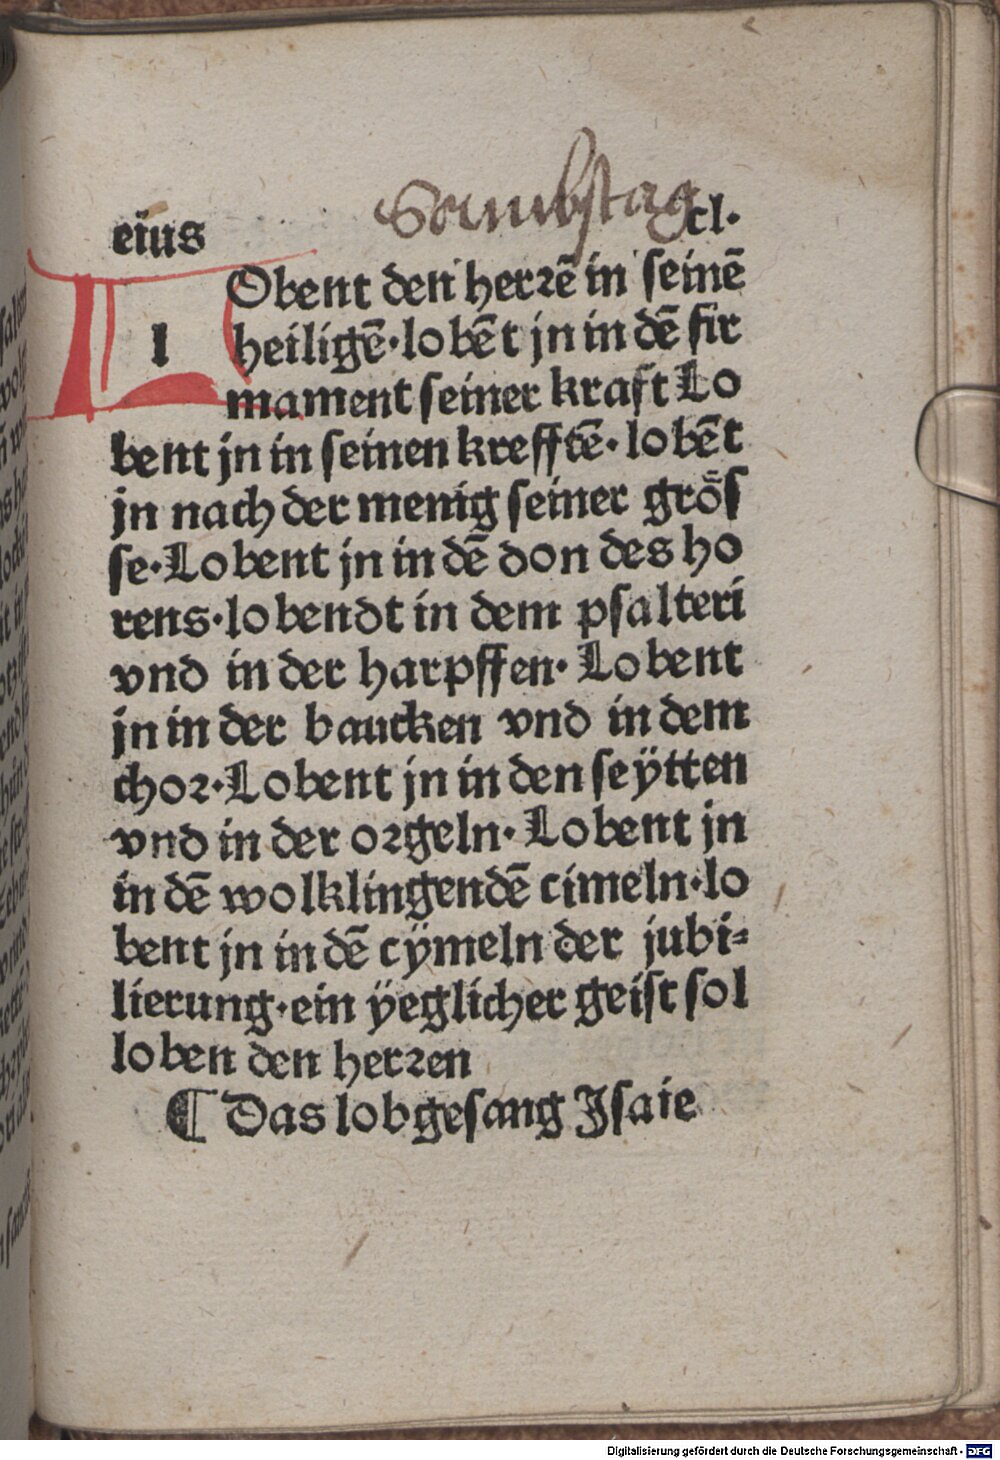 Sambstag
eius cl·
LObent den herrē in seinē
heiligē·lobēt jn in dē fir
mament seiner kraft Lo
bent jn in seinen krefftē·lobēt
jn nach der menig seiner grös
se·Lobent jn in dē don des ho
rens·lobendt in dem psalteri
vnd in der harpffen·Lobent
jn in der baucken vnd in dem
chor·Lobent jn in den seÿtten
vnd in der orgeln·Lobent jn
in dē wolklingendē cimeln·lo
bent jn in dē cÿmeln der jubi⸗
lierung·ein ÿeglicher geist sol
loben den herren
¶ Das lobgesang Isaie
Digitalisierung gefördert durch die Deutsche Forschungsgemeinschaft - DFG